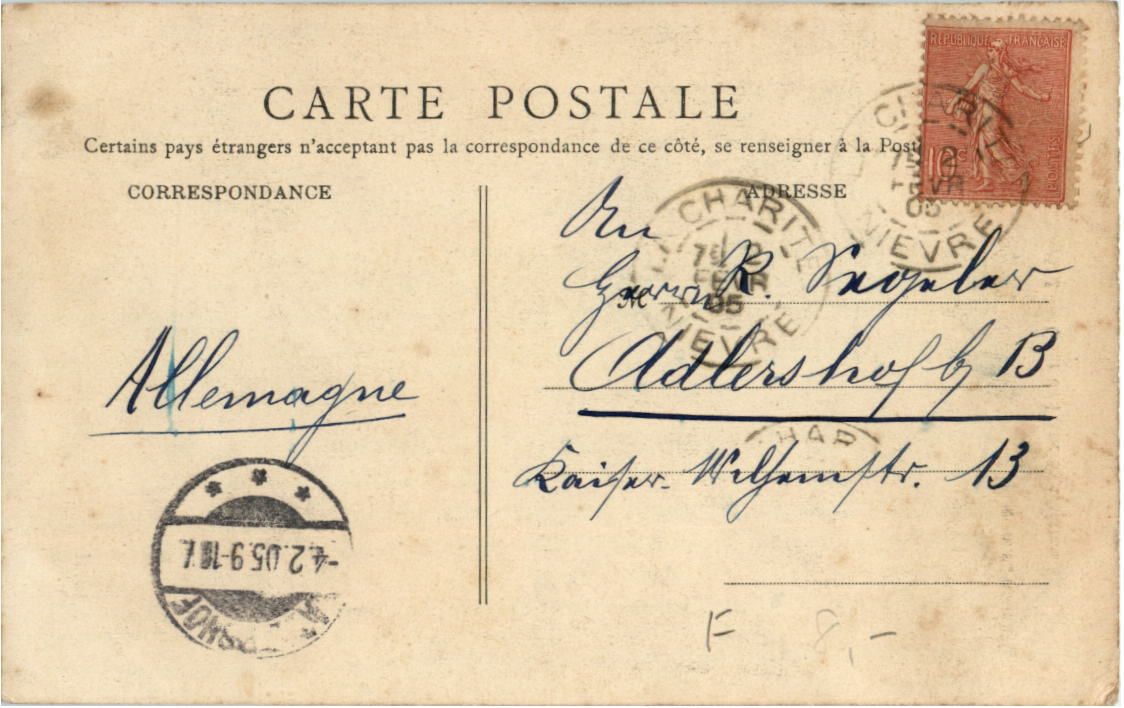 CARTE POSTALE
Certains pays étrangers n'acceptant pas la correspondance de ce côté, se renseigner à la Post
CORRESPONDANCE
ADRESSE
RÉPUBLIQUE FRANÇAISE
10c
POSTES
LA CHARITÉ
2
FEVR
05
NIEVRE
LA CHARITE
2
FEVR
05
NIEVRE
An
Herrn R. Segeler
Adlershof b/ B
Kaiser-Wilhemstr. 13
CHAR
Allemagne
-4.2.05.9-10V.
HOF
F 8,-